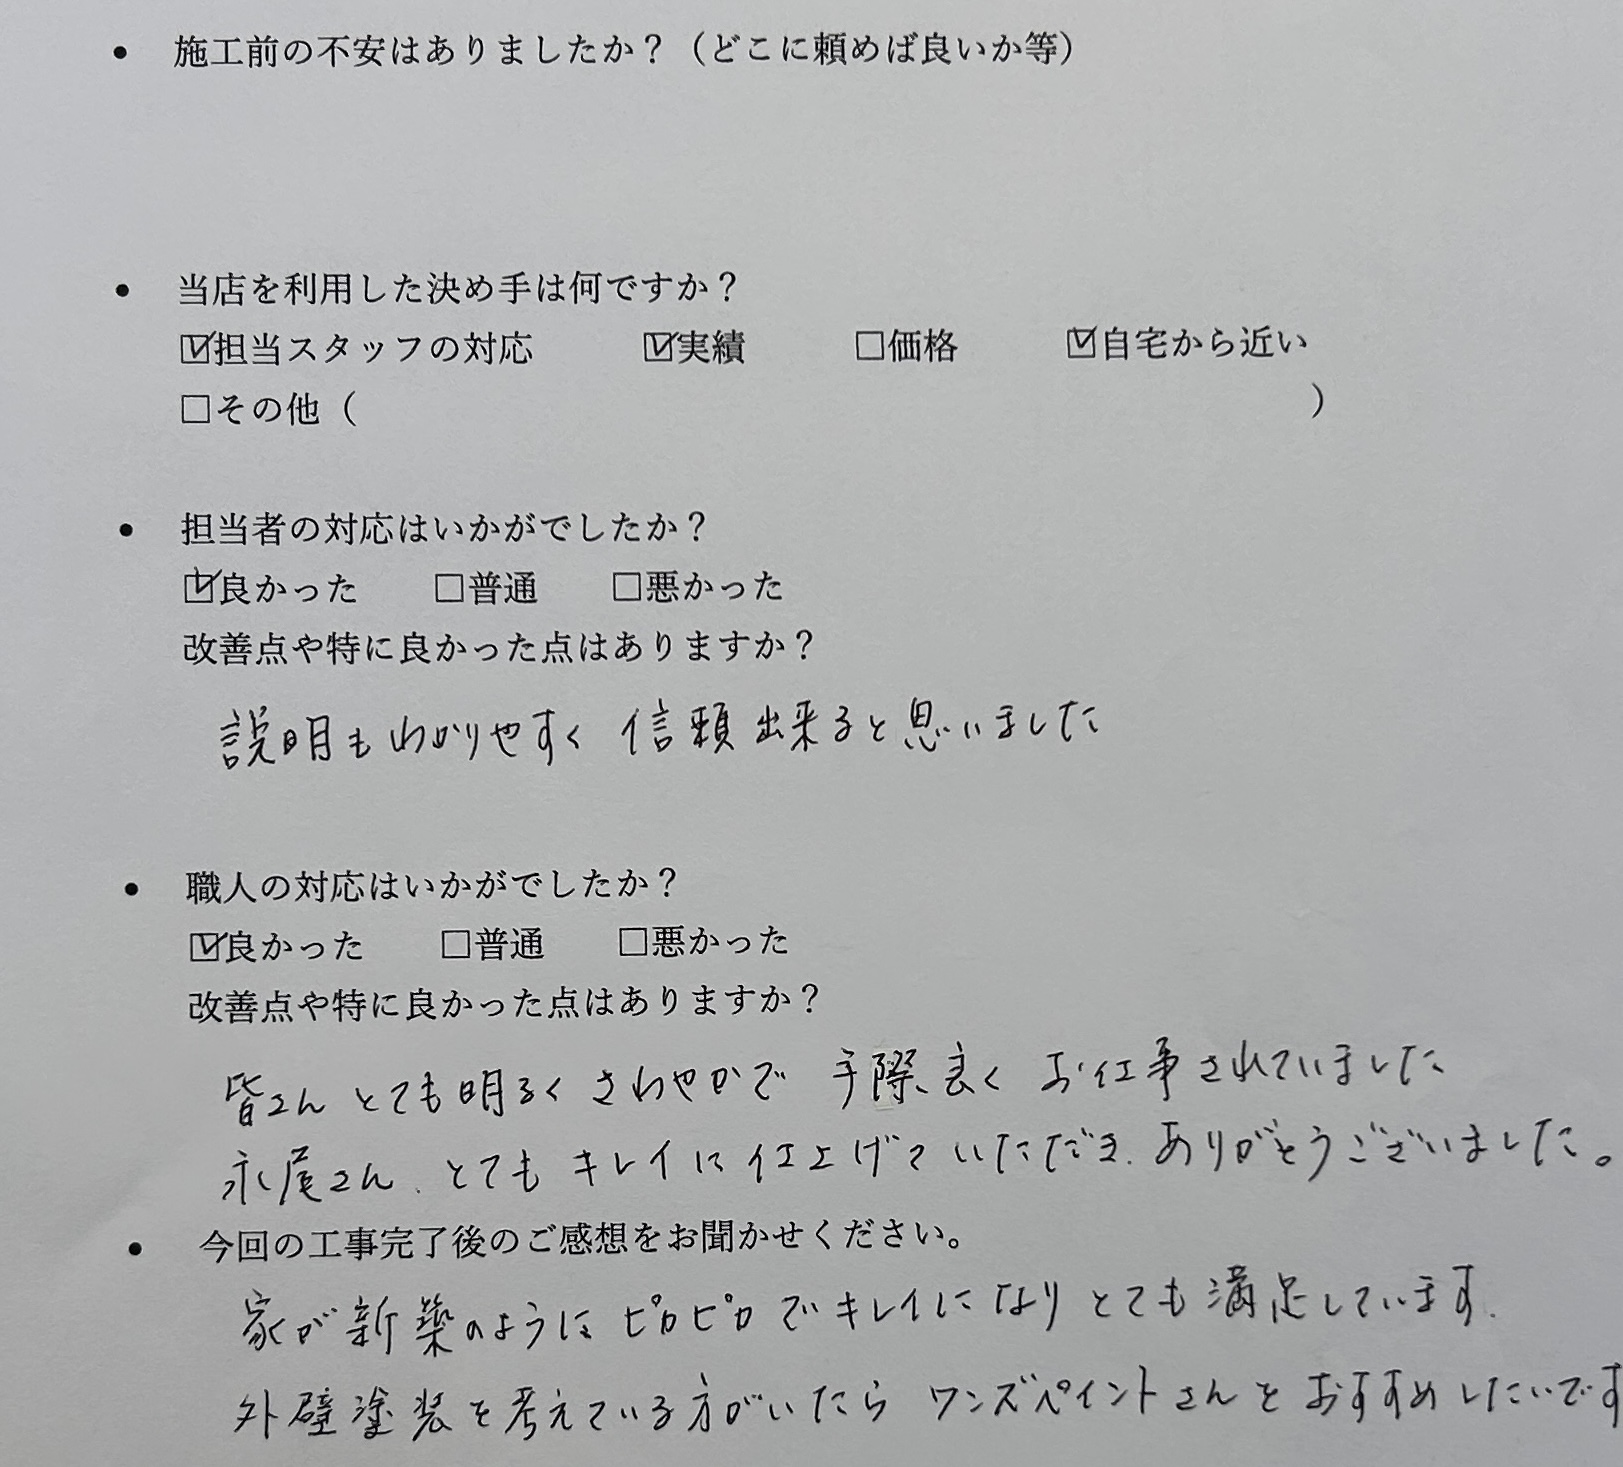 • 施工前の不安はありましたか？（どこに頼めば良いか等）
• 当店を利用した決め手は何ですか？
☑担当スタッフの対応 ☑実績 □価格 ☑自宅から近い
□その他（ ）
• 担当者の対応はいかがでしたか？
☑良かった □普通 □悪かった
改善点や特に良かった点はありますか？
説明もわかりやすく 信頼出来ると思いました
• 職人の対応はいかがでしたか？
☑良かった □普通 □悪かった
改善点や特に良かった点はありますか？
皆さんとても明るくさわやかで 手際良く お仕事されていました
永尾さん、とてもキレイに仕上げていただき、ありがとうございました。
• 今回の工事完了後のご感想をお聞かせください。
家が新築のようにピカピカでキレイになりとても満足しています。
外壁塗装を考えている方がいたら ワンズペイントさんをおすすめしたいです